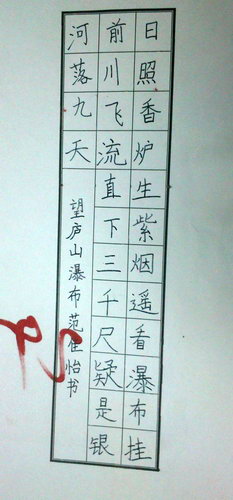 日照香炉生紫烟遥看瀑布挂
前川飞流直下三千尺疑是银
河落九天
望庐山瀑布范佳怡书